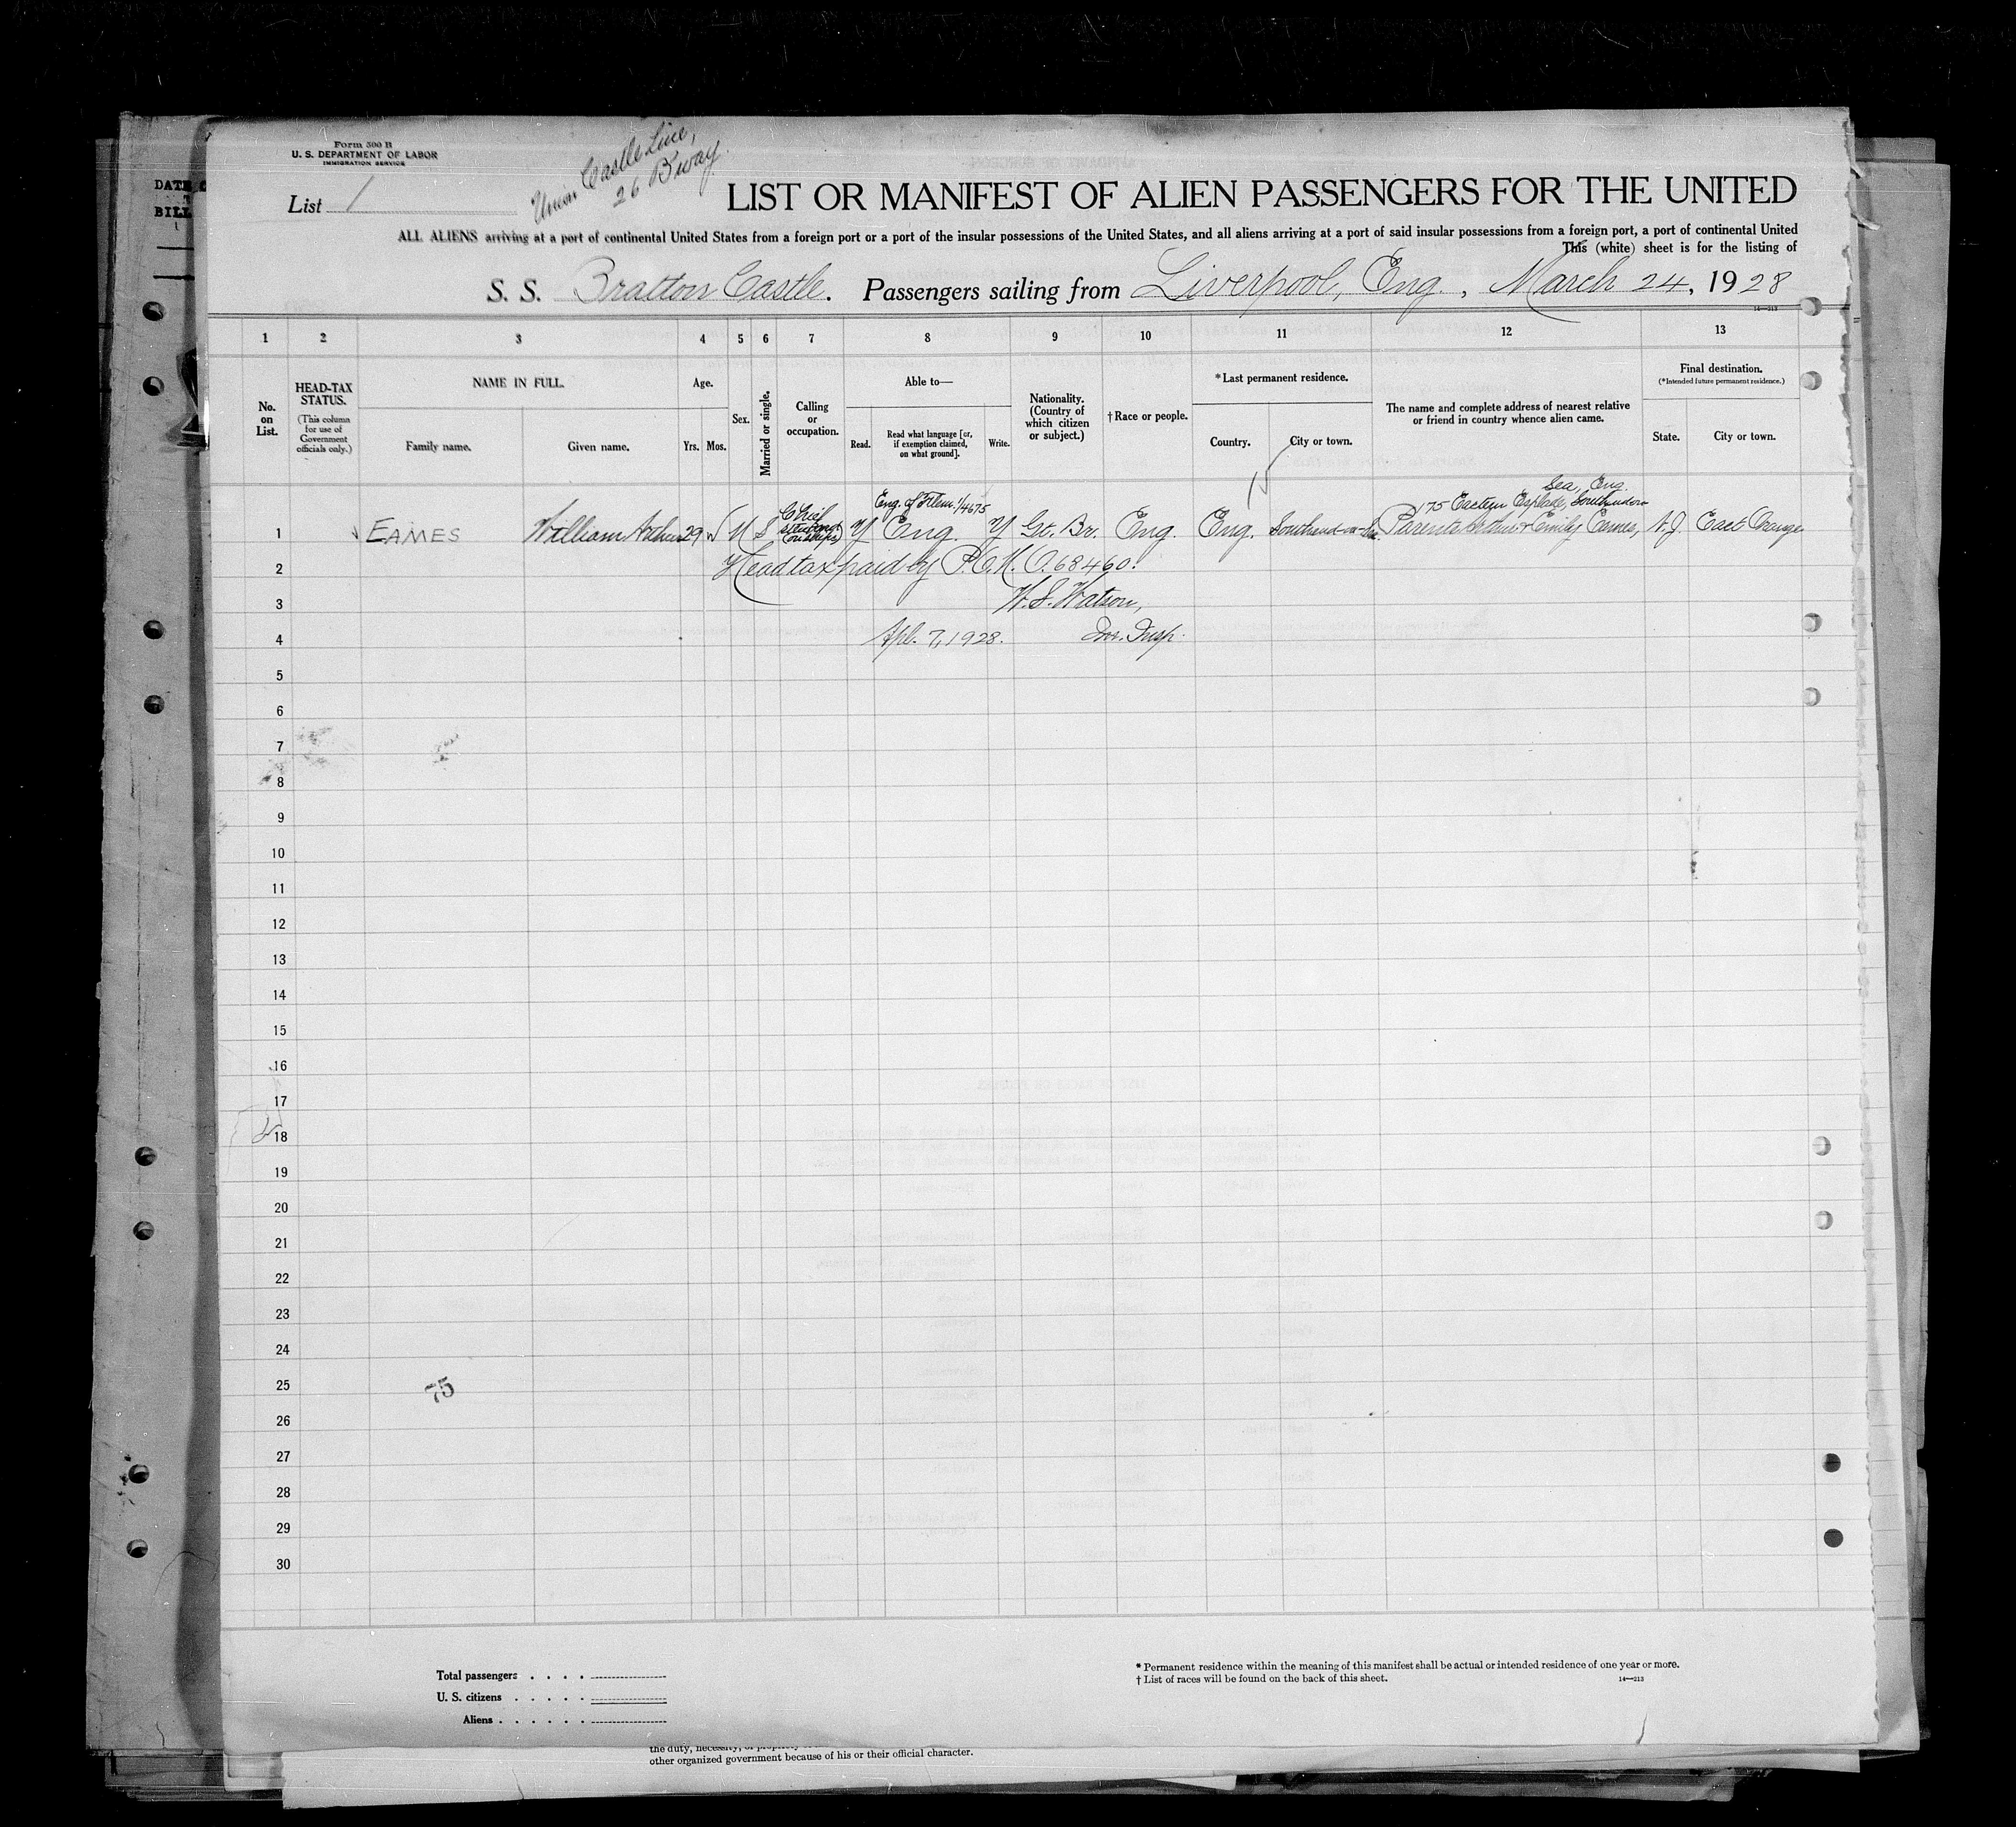 Form 500 B
U. S. DEPARTMENT OF LABOR
IMMIGRATION SERVICE
Union Castle Line,
26 B'way
List 1
DATE
BILL
LIST OR MANIFEST OF ALIEN PASSENGERS FOR THE UNITED
ALL ALIENS arriving at a port of continental United States from a foreign port or a port of the insular possessions of the United States, and all aliens arriving at a port of said insular possessions from a foreign port, a port of continental United
This (white) sheet is for the listing of
S. S. Bratton Castle. Passengers sailing from Liverpool, Eng., March 24, 1928
14—213
1 2 3 4 5 6 7 8 9 10 11 12 13
No. on List.
HEAD-TAX STATUS.
(This column for use of Government officials only.)
NAME IN FULL.
Family name. Given name.
Age.
Yrs. Mos.
Sex.
Married or single.
Calling or occupation.
Able to—
Read. Read what language [or, if exemption claimed, on what ground]. Write.
Nationality. (Country of which citizen or subject.)
†Race or people.
*Last permanent residence.
Country. City or town.
The name and complete address of nearest relative or friend in country whence alien came.
Final destination.
(*Intended future permanent residence.)
State. City or town.
Sea, Eng.
175 Eastern Esplade, Southend on
1 EAMES William Arthur 29 M S Chief steward Y Eng. Y Gt. Br. Eng. Eng. Southend-on-Sea. Parents Arthur & Emily Eames, N.J. East Orange
2 Head tax paid by P.O.M.O. 68460.
3 W. S. Watson,
4 Apl. 7, 1928. Imr. Insp.
5
6
7
8
9
10
11
12
13
14
15
16
17
18
19
20
21
22
23
24
25 75
26
27
28
29
30
Total passengers
U. S. citizens
Aliens
* Permanent residence within the meaning of this manifest shall be actual or intended residence of one year or more.
† List of races will be found on the back of this sheet.
14—213
other organized government because of his or their official character.